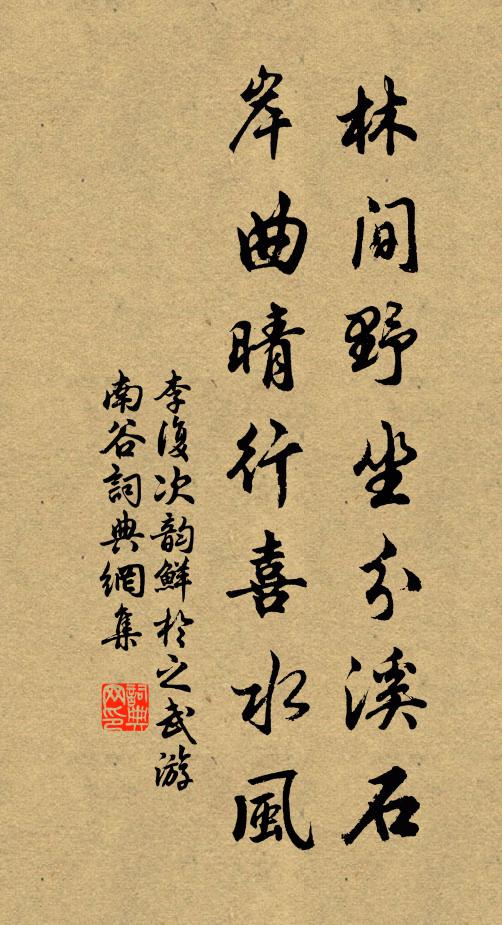 林間野坐分溪石
岸曲晴行喜水風
李復次韵鮮於之武游
南谷詞典網集
詞典
网印